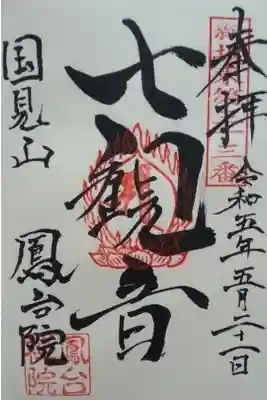 奉拝
令和五年五月二十一日
七観音
国見山
鳳台院
鳳台
院